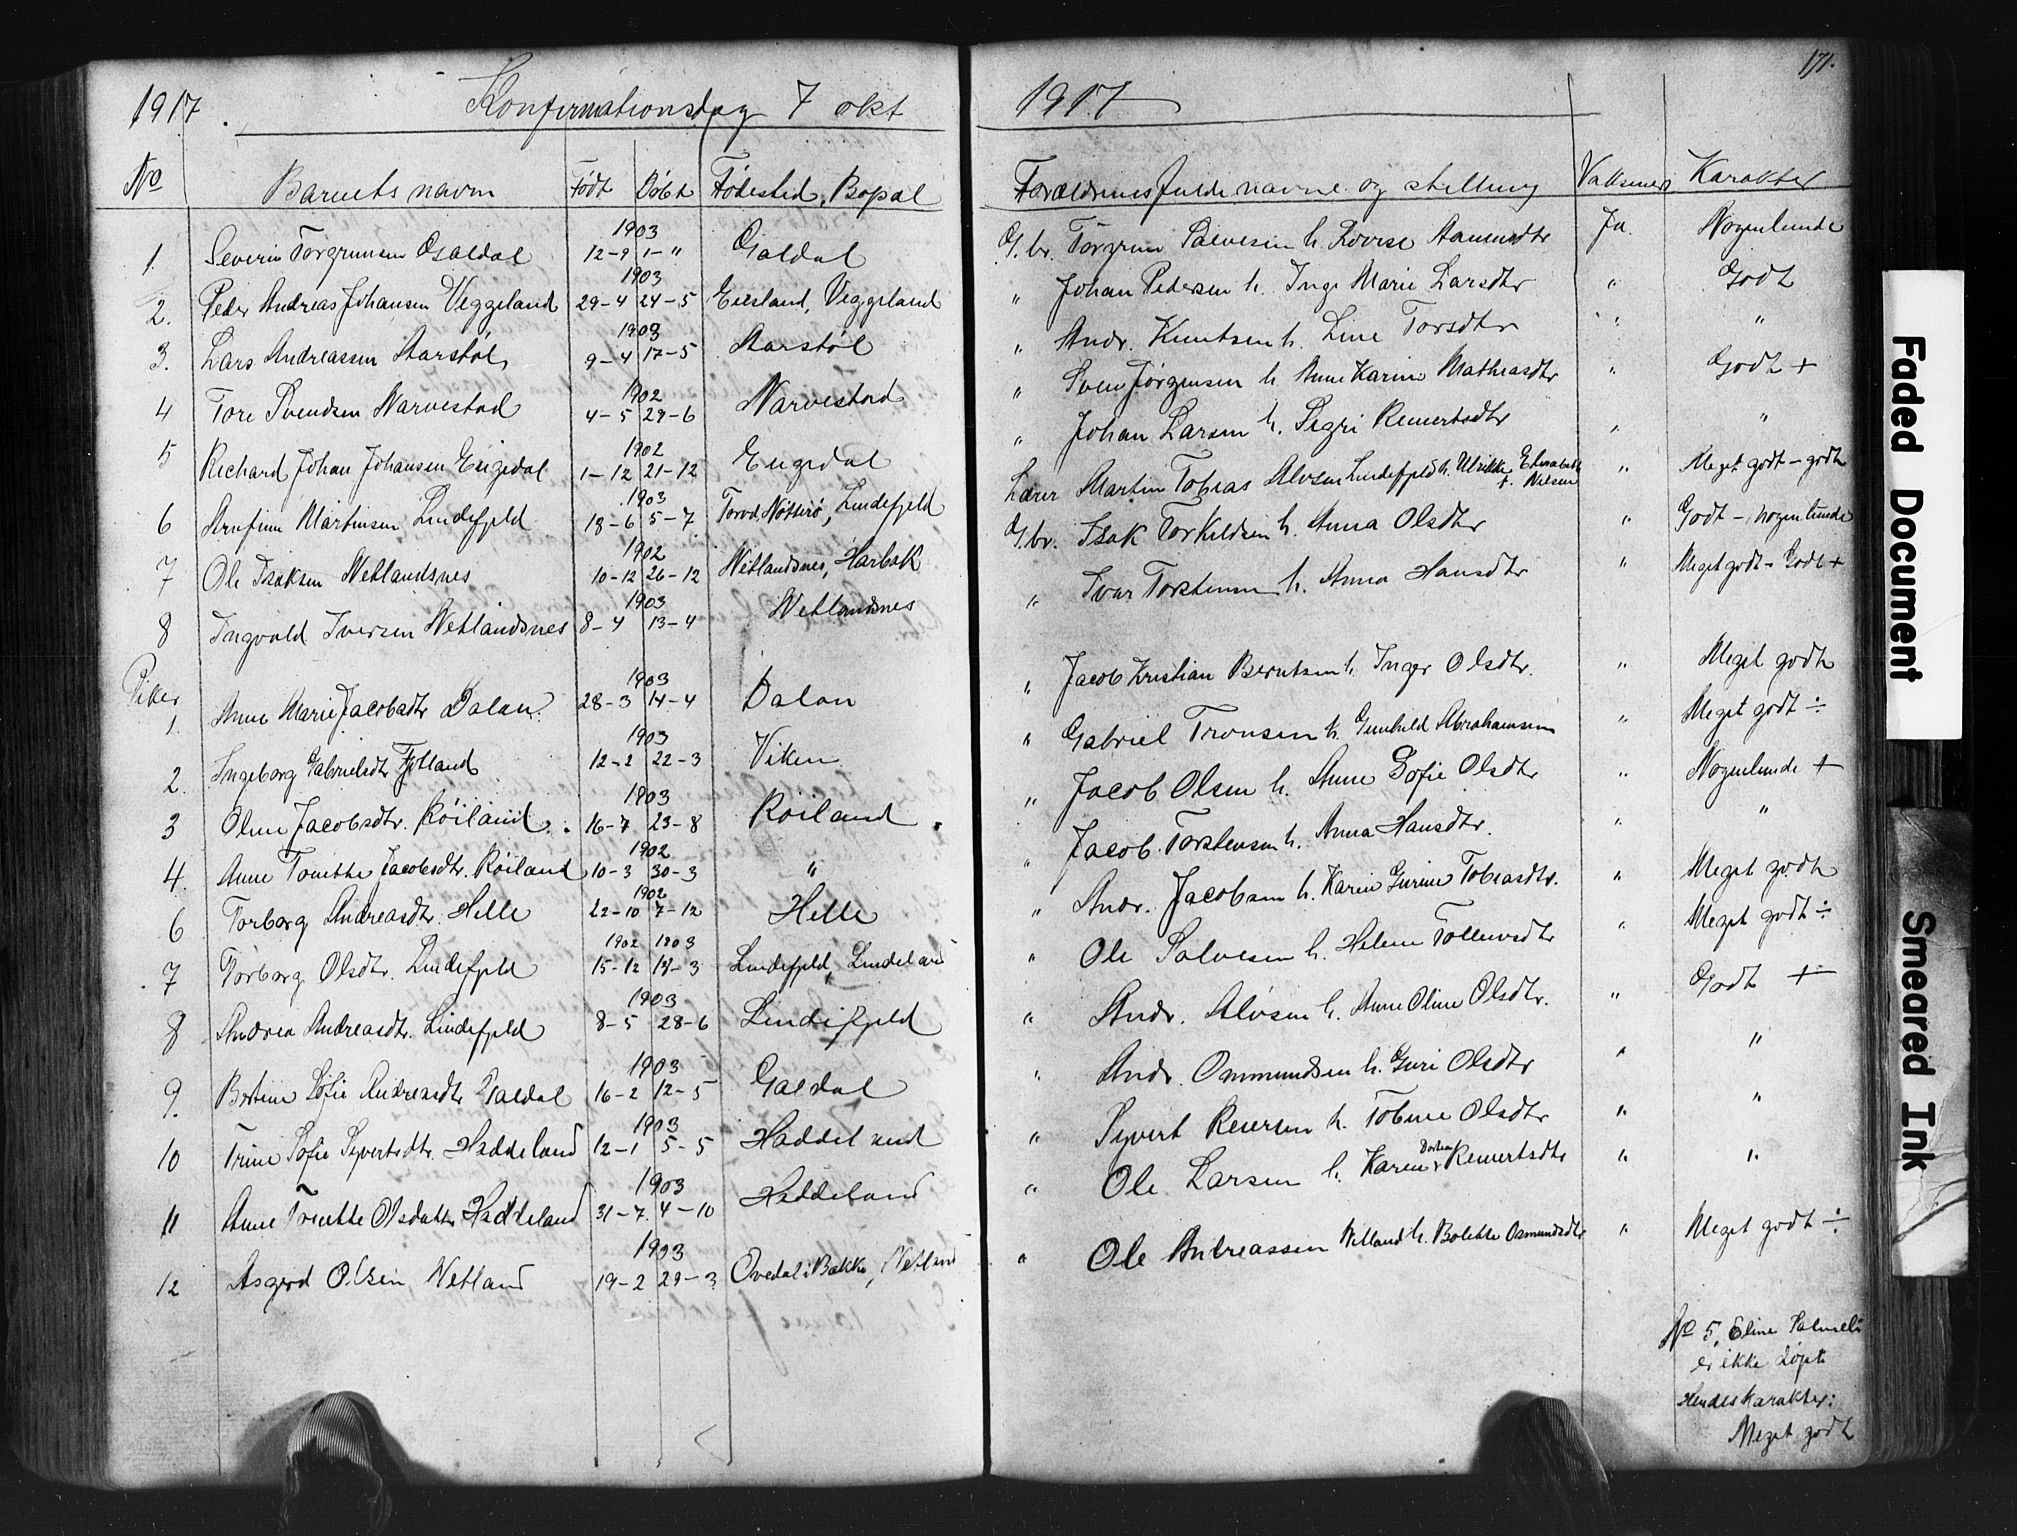 1917 Konfirmationsdag 7 okt
No Barnets navn Født Døbt Fødested, Bopæl
1903
1. Severin Torgrimsen Galdal 12-9 1-" Galdal
1903
2. Peder Andreas Johansen Veggeland 29-4 24-5 Eiesland, Veggeland
1903
3. Lars Andreassen Aarstøl 9-4 17-5 Aarstøl
1902
4 Tore Svendsen Narvestad 4-5 29-6 Narvestad
1902
5 Richard Johan Johansen Eigedal 1-12 21-12 Eigedal
1903
6 Arnfinn Martinsen Lindefjeld 18-6 5-7 Nøtterø, Lindefjeld
1902
7 Ole Isaksen Netlandsnes 10-12 26-12 Netlandsnes, Harbak
1903
8 Ingvald Iversen Netlandsnes 8-4 13-4 Netlandsnes
Piker
1903
1. Anne Marie Jacobsdtr Dalan 28-3 14-4 Dalan
1903
2. Ingeborg Gabrielsdtr Fjotland 12-2 22-3 Viken
1903
3 Oline Jacobsdtr. Røiland 16-7 23-8 Røiland
1902
4. Anne Tonette Jacobsdtr. Røiland 10-3 30-3 "
1902
6 Torborg Andreasdtr. Helle 22-10 7-12 Helle
1902 1903
7 Torborg Olsdtr. Lindefjeld 15-12 14-3 Lindefjeld, Lindeland
1903
8 Andrea Andreasdtr. Lindefjeld 8-5 28-6 Lindefjeld
1903
9. Bertine Sofie Andreasdtr Galdal 16-2 12-5 Galdal
1903
10 Trine Sofie Syvertsdtr. Haddeland 12-1 5-5 Haddeland
1903
11 Anne Trinette Olsdatter Haddeland 31-7 4-10 Haddeland
1903
12 Asgerd Olsen Netland 19-2 29-3 Ovedal i Bakke, Netland
171.
1917
Forældrenes fulde navne og stilling Vaksiner Karakter
G.br. Torgrim Salvesen h. Lovise Aanensdtr Ja. Nogenlunde
" Johan Pedersen h. Inge Marie Larsdtr " Godt
" Andr. Knutsen h. Line Torsdtr " "
" Sven Jørgensen h. Anne Karine Mathiasdtr " Godt +
" Johan Larsen h. Sigri Reinertsdtr " "
Lærer Martin Tobias Alvsen Lindefjeld h. Ulrikke Elisabeth f. Nilsen " Meget godt - godt
G.br. Isak Torkildsen h. Anna Olsdtr " Godt - nogenlunde
" Ivar Torstensen h. Anna Hansdtr " Meget godt - Godt +
" Jacob Kristian Berntsen h. Inger Olsdtr. " Meget godt
" Gabriel Tronsen h. Gunhild Abrahamsen " Meget godt ÷
" Jacob Olsen h. Anne Sofie Olsdtr " Nogenlunde +
" Jacob Torstensen h. Anna Hansdtr. " "
" Andr. Jacobsen h. Karen Gurine Tobiasdtr. " Meget godt
" Ole Salvesen h. Helene Tollevsdtr " Meget godt ÷
" Andr. Alvsen h. Anne Oline Olsdtr. " Godt +
" Andr. Ommundsen h. Guri Olsdtr " "
" Syvert Reiersen h. Tobine Olsdtr " "
" Ole Larsen h. Karen Dorthea Reinertsdtr " "
" Ole Andreassen Netland h. Bolette Osmundsdtr " Meget godt ÷
No 5, Eline
er ikke døpt
Hendes karakter:
Meget godt
Faded Document
Smeared Ink